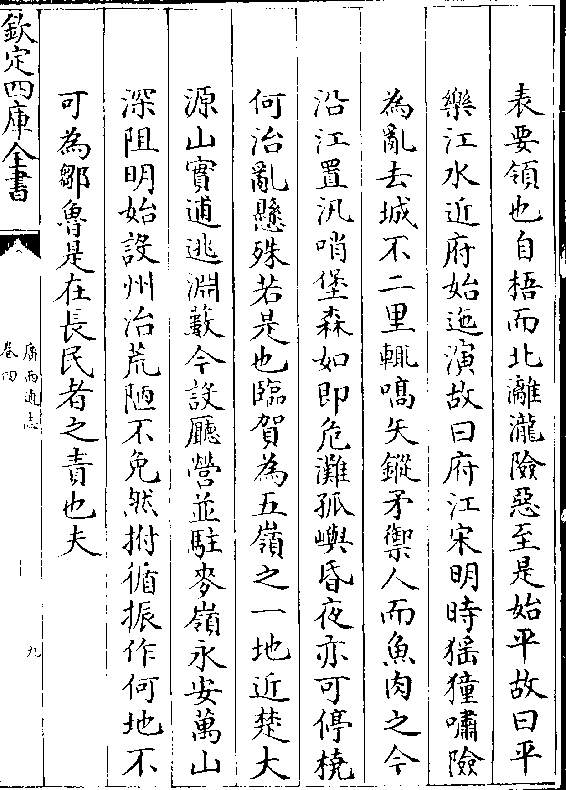 表要領也自梧而北灕瀧險惡至是始平故曰平
樂江水近府始迤演故曰府江宋明時猺獞嘯險
為亂去城不二里輒嗃矢鏦矛禦人而魚肉之今
沿江置汛哨堡森如即危灘孤嶼昏夜亦可停橈
何治亂懸殊若是也臨賀為五嶺之一地近楚大
源山實逋逃淵藪今設廳營並駐麥嶺永安萬山
深阻明始設州治荒陋不免然拊循振作何地不
可為鄒魯是在長民者之責也夫
欽定四庫全書
廣西通志
卷四
九